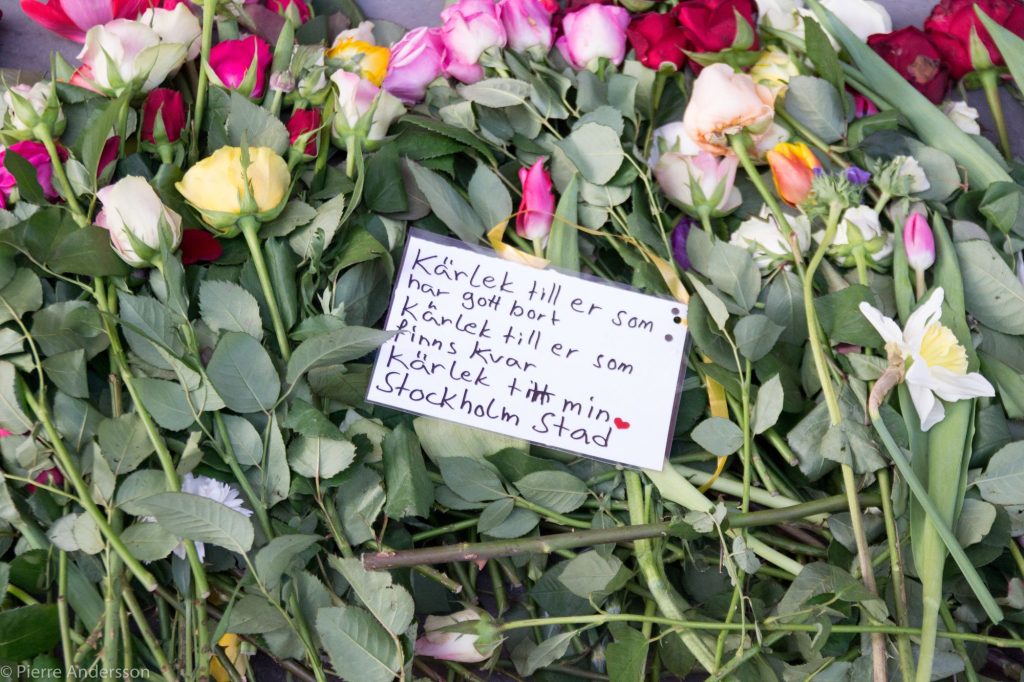 Kärlek till er som
har gott bort
Kärlek till er som
finns kvar
Kärlek till min
Stockholm Stad
© Pierre Andersson